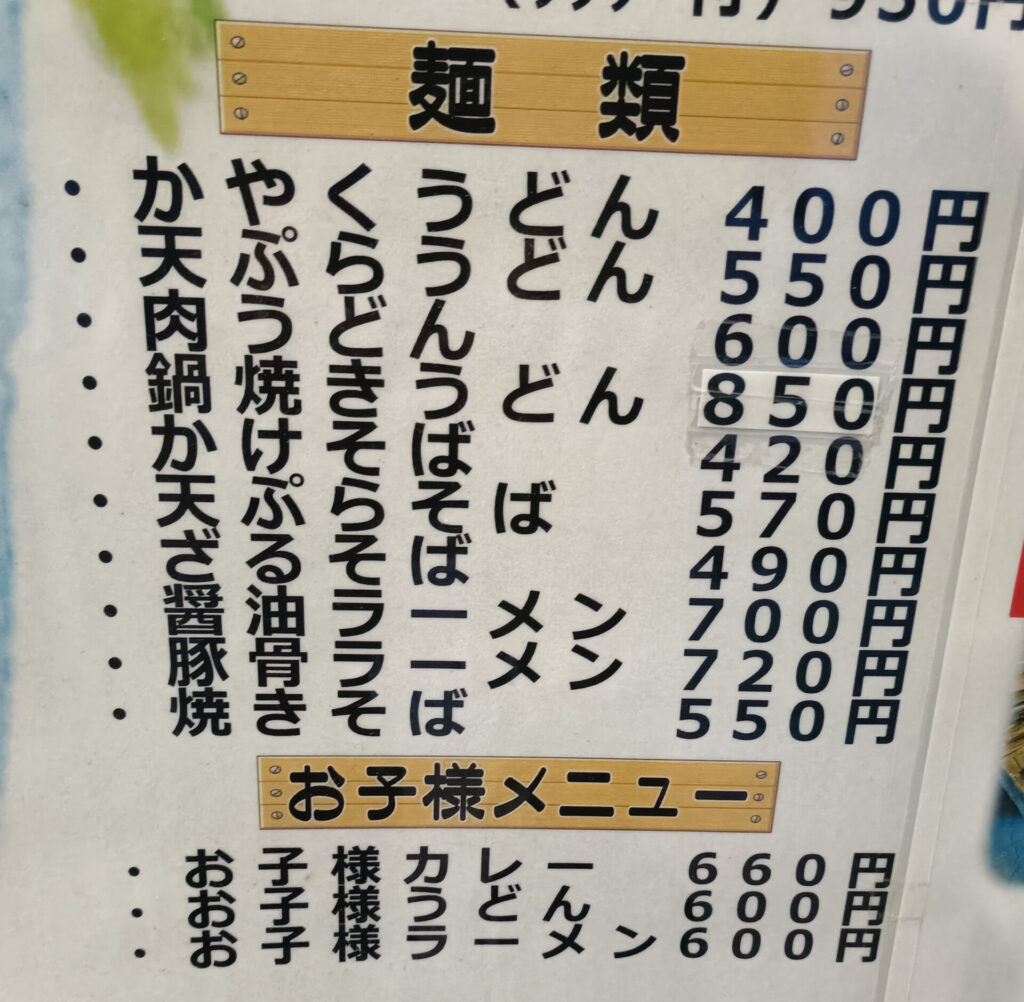 麺類
・かやくうどん 400円
・天ぷらうどん 550円
・肉うどん 600円
・鍋焼きうどん 850円
・かけそば 420円
・天ぷらそば 570円
・ざるそば 490円
・醤油ラーメン 700円
・豚骨ラーメン 720円
・焼きそば 550円
お子様メニュー
・お子様カレー 660円
・お子様うどん 600円
・お子様ラーメン 600円